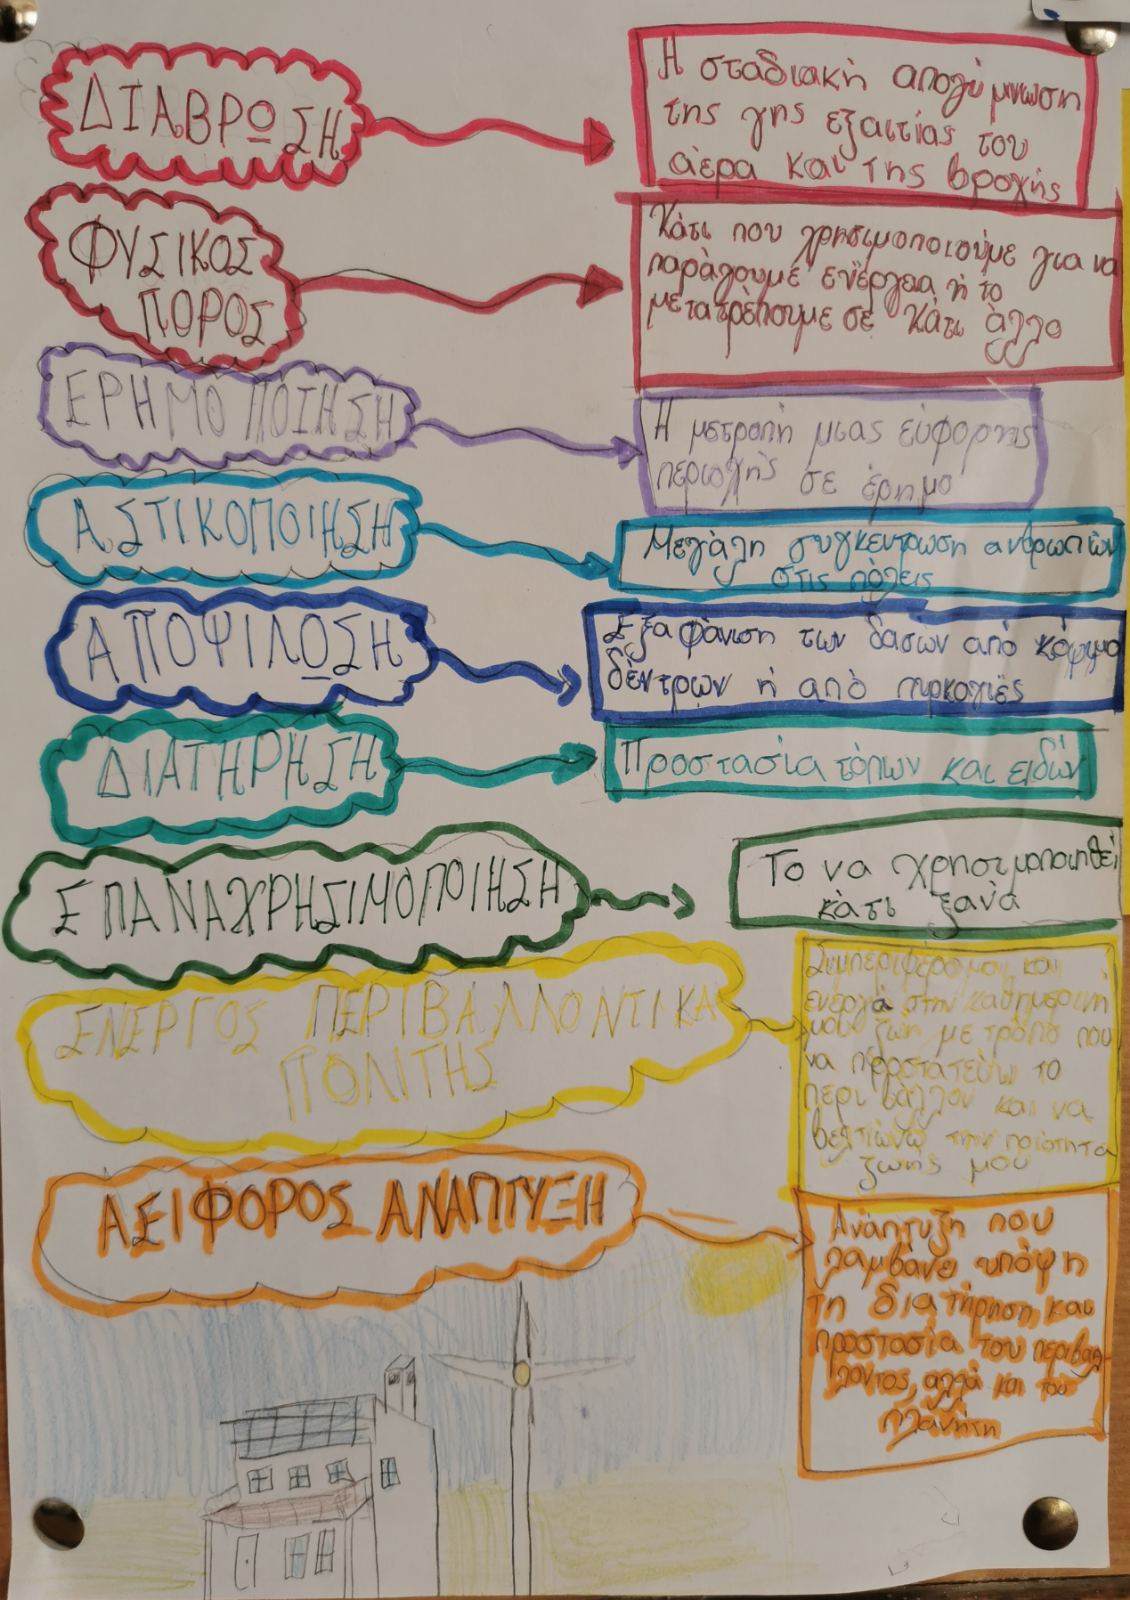 ΔΙΑΒΡΩΣΗ
Η σταδιακή απολύμνωση
της γης εξαιτίας του
αέρα και της βροχής
ΦΥΣΙΚΟΣ
ΠΟΡΟΣ
Κάτι που χρησιμοποιούμε για να
παράγουμε ενέργεια ή το
μετατρέπουμε σε κάτι άλλο
ΕΡΗΜΟΠΟΙΗΣΗ
Η μετροπή μιας εύφορης
περιοχής σε έρημο
ΑΣΤΙΚΟΠΟΙΗΣΗ
Μεγάλη συγκεντρωση ανθρωπων
στις πόλεις
ΑΠΟΨΙΛΟΣΗ
Εξαφάνιση των δασών από κόψιμο
δέντρων ή από πυρκαγιές
ΔΙΑΤΗΡΗΣΗ
Προστασία τόπων και ειδών
ΕΠΑΝΑΧΡΗΣΙΜΟΠΟΙΗΣΗ
Το να χρησιμοποιηθεί
κάτι ξανά
ΕΝΕΡΓΟΣ ΠΕΡΙΒΑΛΛΟΝΤΙΚΑ
ΠΟΛΙΤΗΣ
Συμπεριφέρομαι και
ενεργώ στην καθημερινή
μου ζωή με τρόπο που
να προστατεύω το
περιβάλλον και να
βελτιώνω την ποιότητα
ζωής μου
ΑΕΙΦΟΡΟΣ ΑΝΑΠΤΥΞΗ
Ανάπτυξη που
λαμβάνει υπόψη
τη διατήρηση και
προστασία του περιβάλ-
λοντος, αλλά και του
πλανήτη